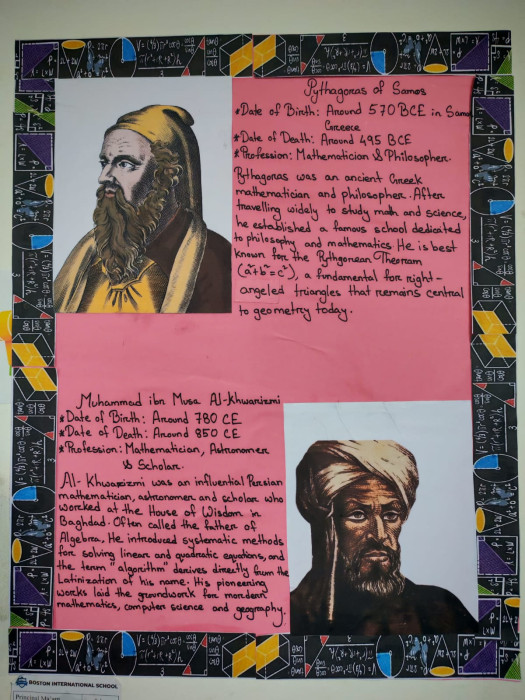 Pythagoras of Samos
*Date of Birth: Around 570 BCE in Samos
Greece
*Date of Death: Around 495 BCE
*Profession: Mathematician & Philosopher.
Pythagoras was an ancient Greek
mathematician and philosopher. After
travelling widely to study math and science,
he established a famous school dedicated
to philosophy and mathematics He is best
known for the Pythgorean Theoram
(a²+b²=c²), a fundamental for right-
angeled triangles that remains central
to geometry today.
Muhammad ibn Musa Al-khwarizmi
*Date of Birth: Around 780 CE
*Date of Death: Around 850 CE
*Profession: Mathematician, Astronomer
& Scholar.
Al-Khwarizmi was an influential Persian
mathematician, astronomer and scholar who
worcked at the House of Wisdom in
Baghdad. Often called the father of
Algebra, He introduced systematic methods
for solving linear and quadratic equations, and
the term "algorithm" derives directly from the
Latinization of his name. His pioneering
works laid the groundwork for mordern
mathematics, computer science and geography.
BOSTON INTERNATIONAL SCHOOL